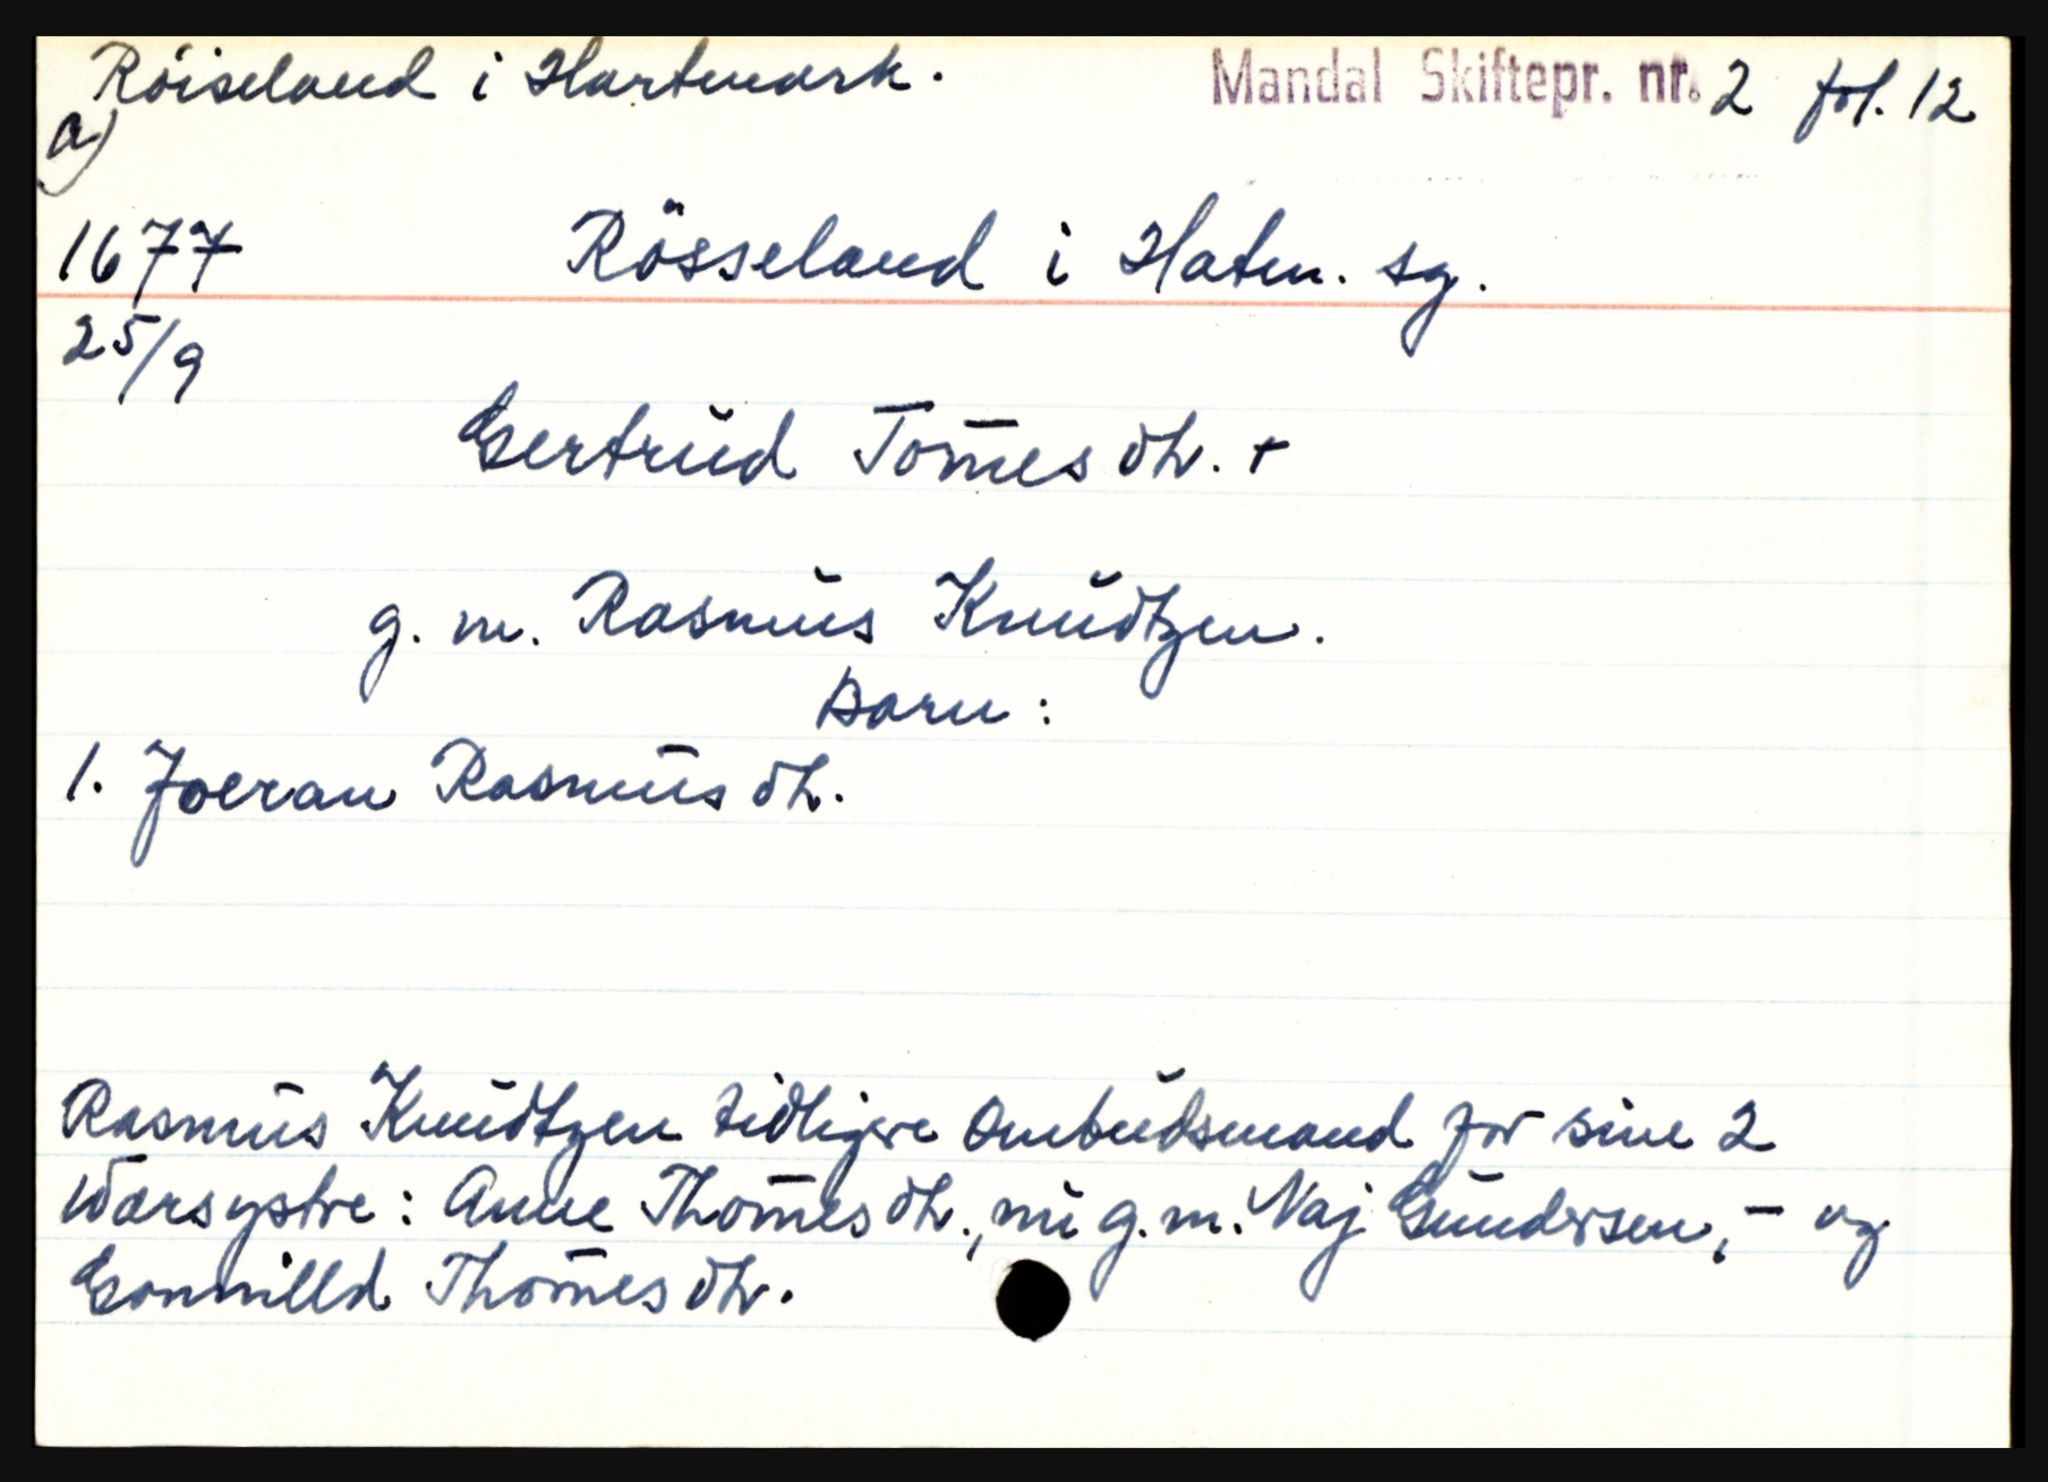 Röiseland i Hartmark. Mandal Skiftepr. nr. 2 fol. 12
a)
1677 Rösseland i Hatm. sg.
25/9
Gertrud Tom̄es dtr. +
g. m. Rasmus Knudtzen.
Barn:
1. Joeran Rasmus dtr.
Rasmus Knudtzen tidligere Ombudsmand for sine 2
Værsystre: Anne Thom̄es dtr., nu g. m. Naj Gundersen, - og
Gonnilld Thom̄es dtr.